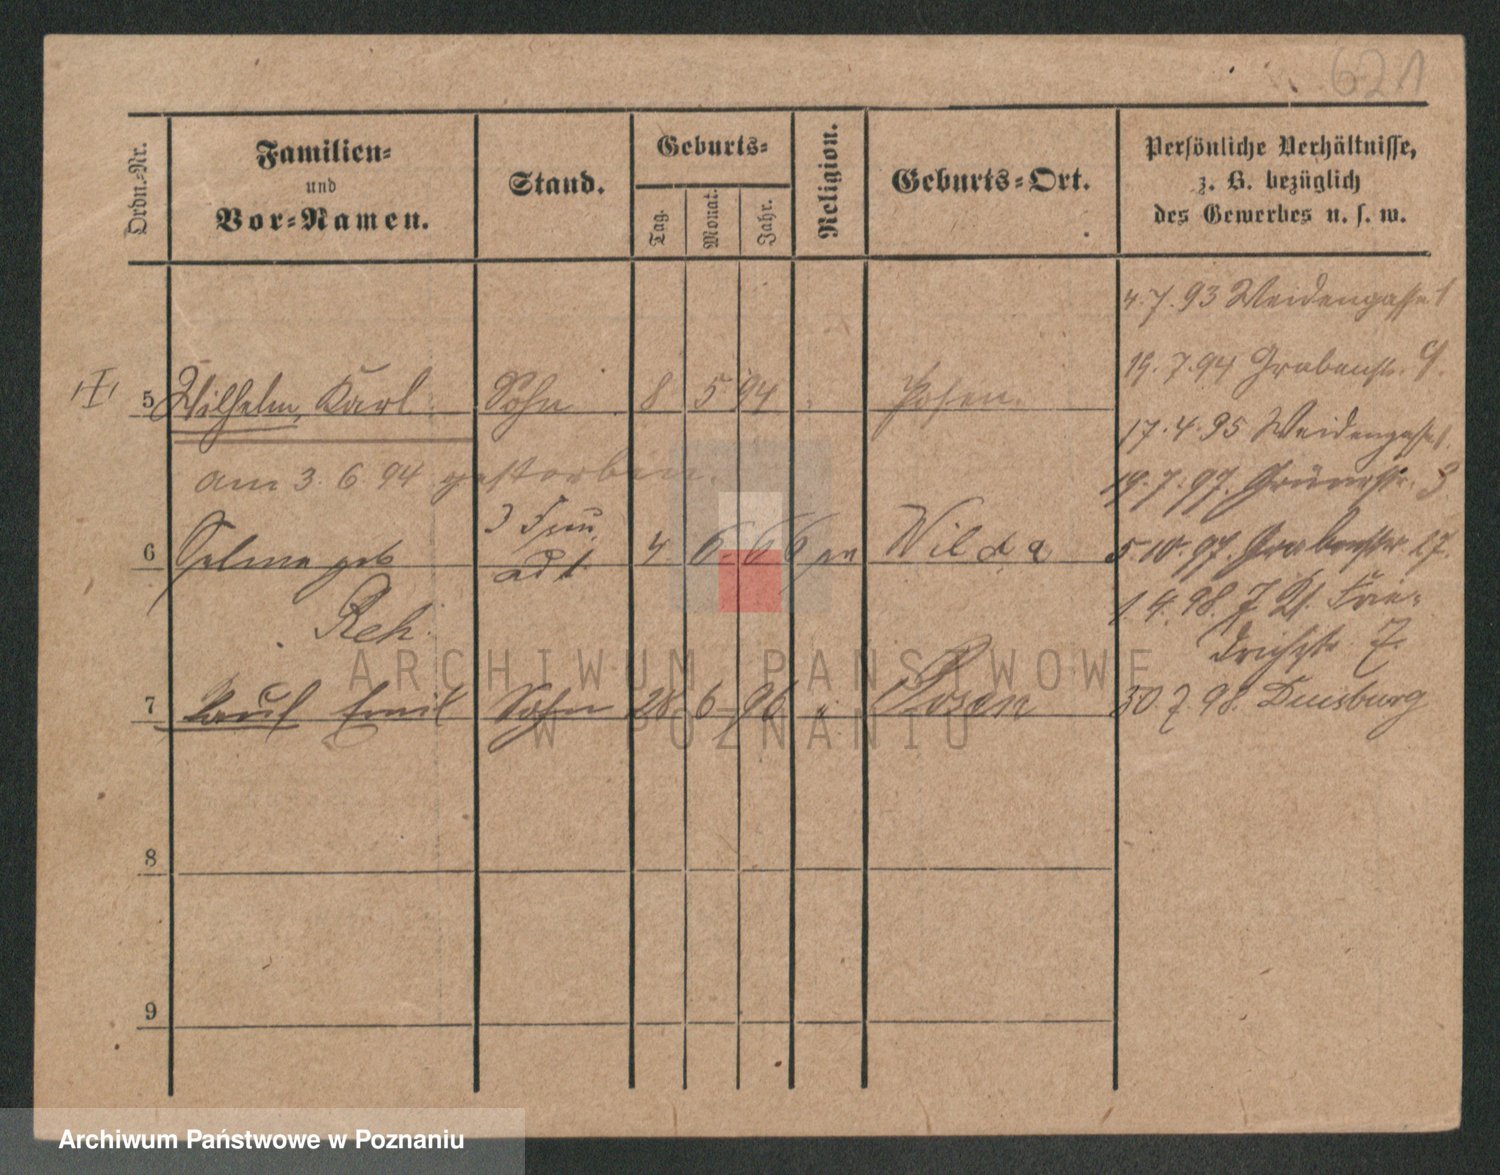 621
Ordn.-Nr.
Familien-
und
Vor-Namen.
Stand.
Geburts-
Tag.
Monat.
Jahr.
Religion.
Geburts-Ort.
Persönliche Verhältnisse,
z. B. bezüglich
des Gewerbes u. s. w.
4.7.93 Weidengasse 1
19.7.94 Grabenstr. 9.
5 Wilhelm, Karl Sohn 8 5 94 Posen.
17.4.95 Weidengasse 1.
am 3.6.94 gestorben.
19.7.97. Grünestr. 3.
3 Frau
6 Selma geb 4. 6. 66 Wilda
5.10.97. Grabenstr. 27.
Reh.
1.4.98. Frie-
drichstr. 7.
7 Paul Emil Sohn 28. 6. 96 " Posen
30.7.98. Duisburg
8
9
ARCHIWUM PAŃSTWOWE
W POZNANIU
Archiwum Państwowe w Poznaniu